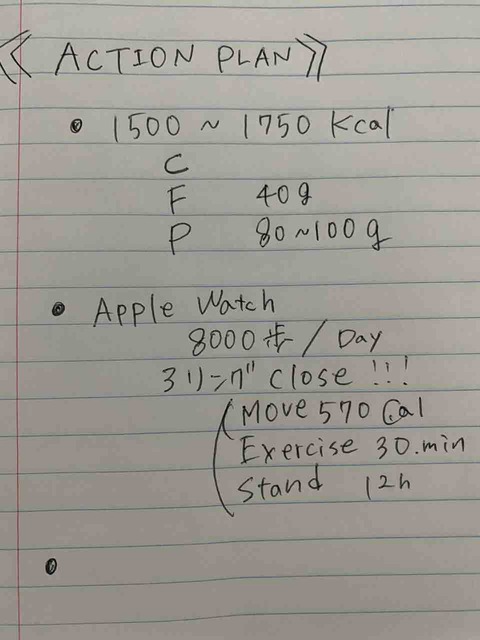 《 ACTION PLAN 》
• 1500 ~ 1750 Kcal
C
F 40g
P 80~100g
• Apple Watch
8000歩 / Day
3リング close !!!
(Move 570 Cal
Exercise 30.min
Stand 12h
•